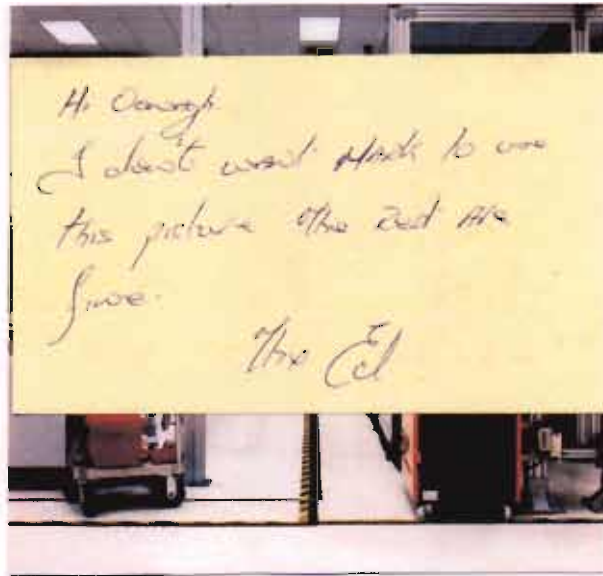 Hi Oonagh.
I don't want Mark to use
this picture the rest are
fine.
Thx Ed